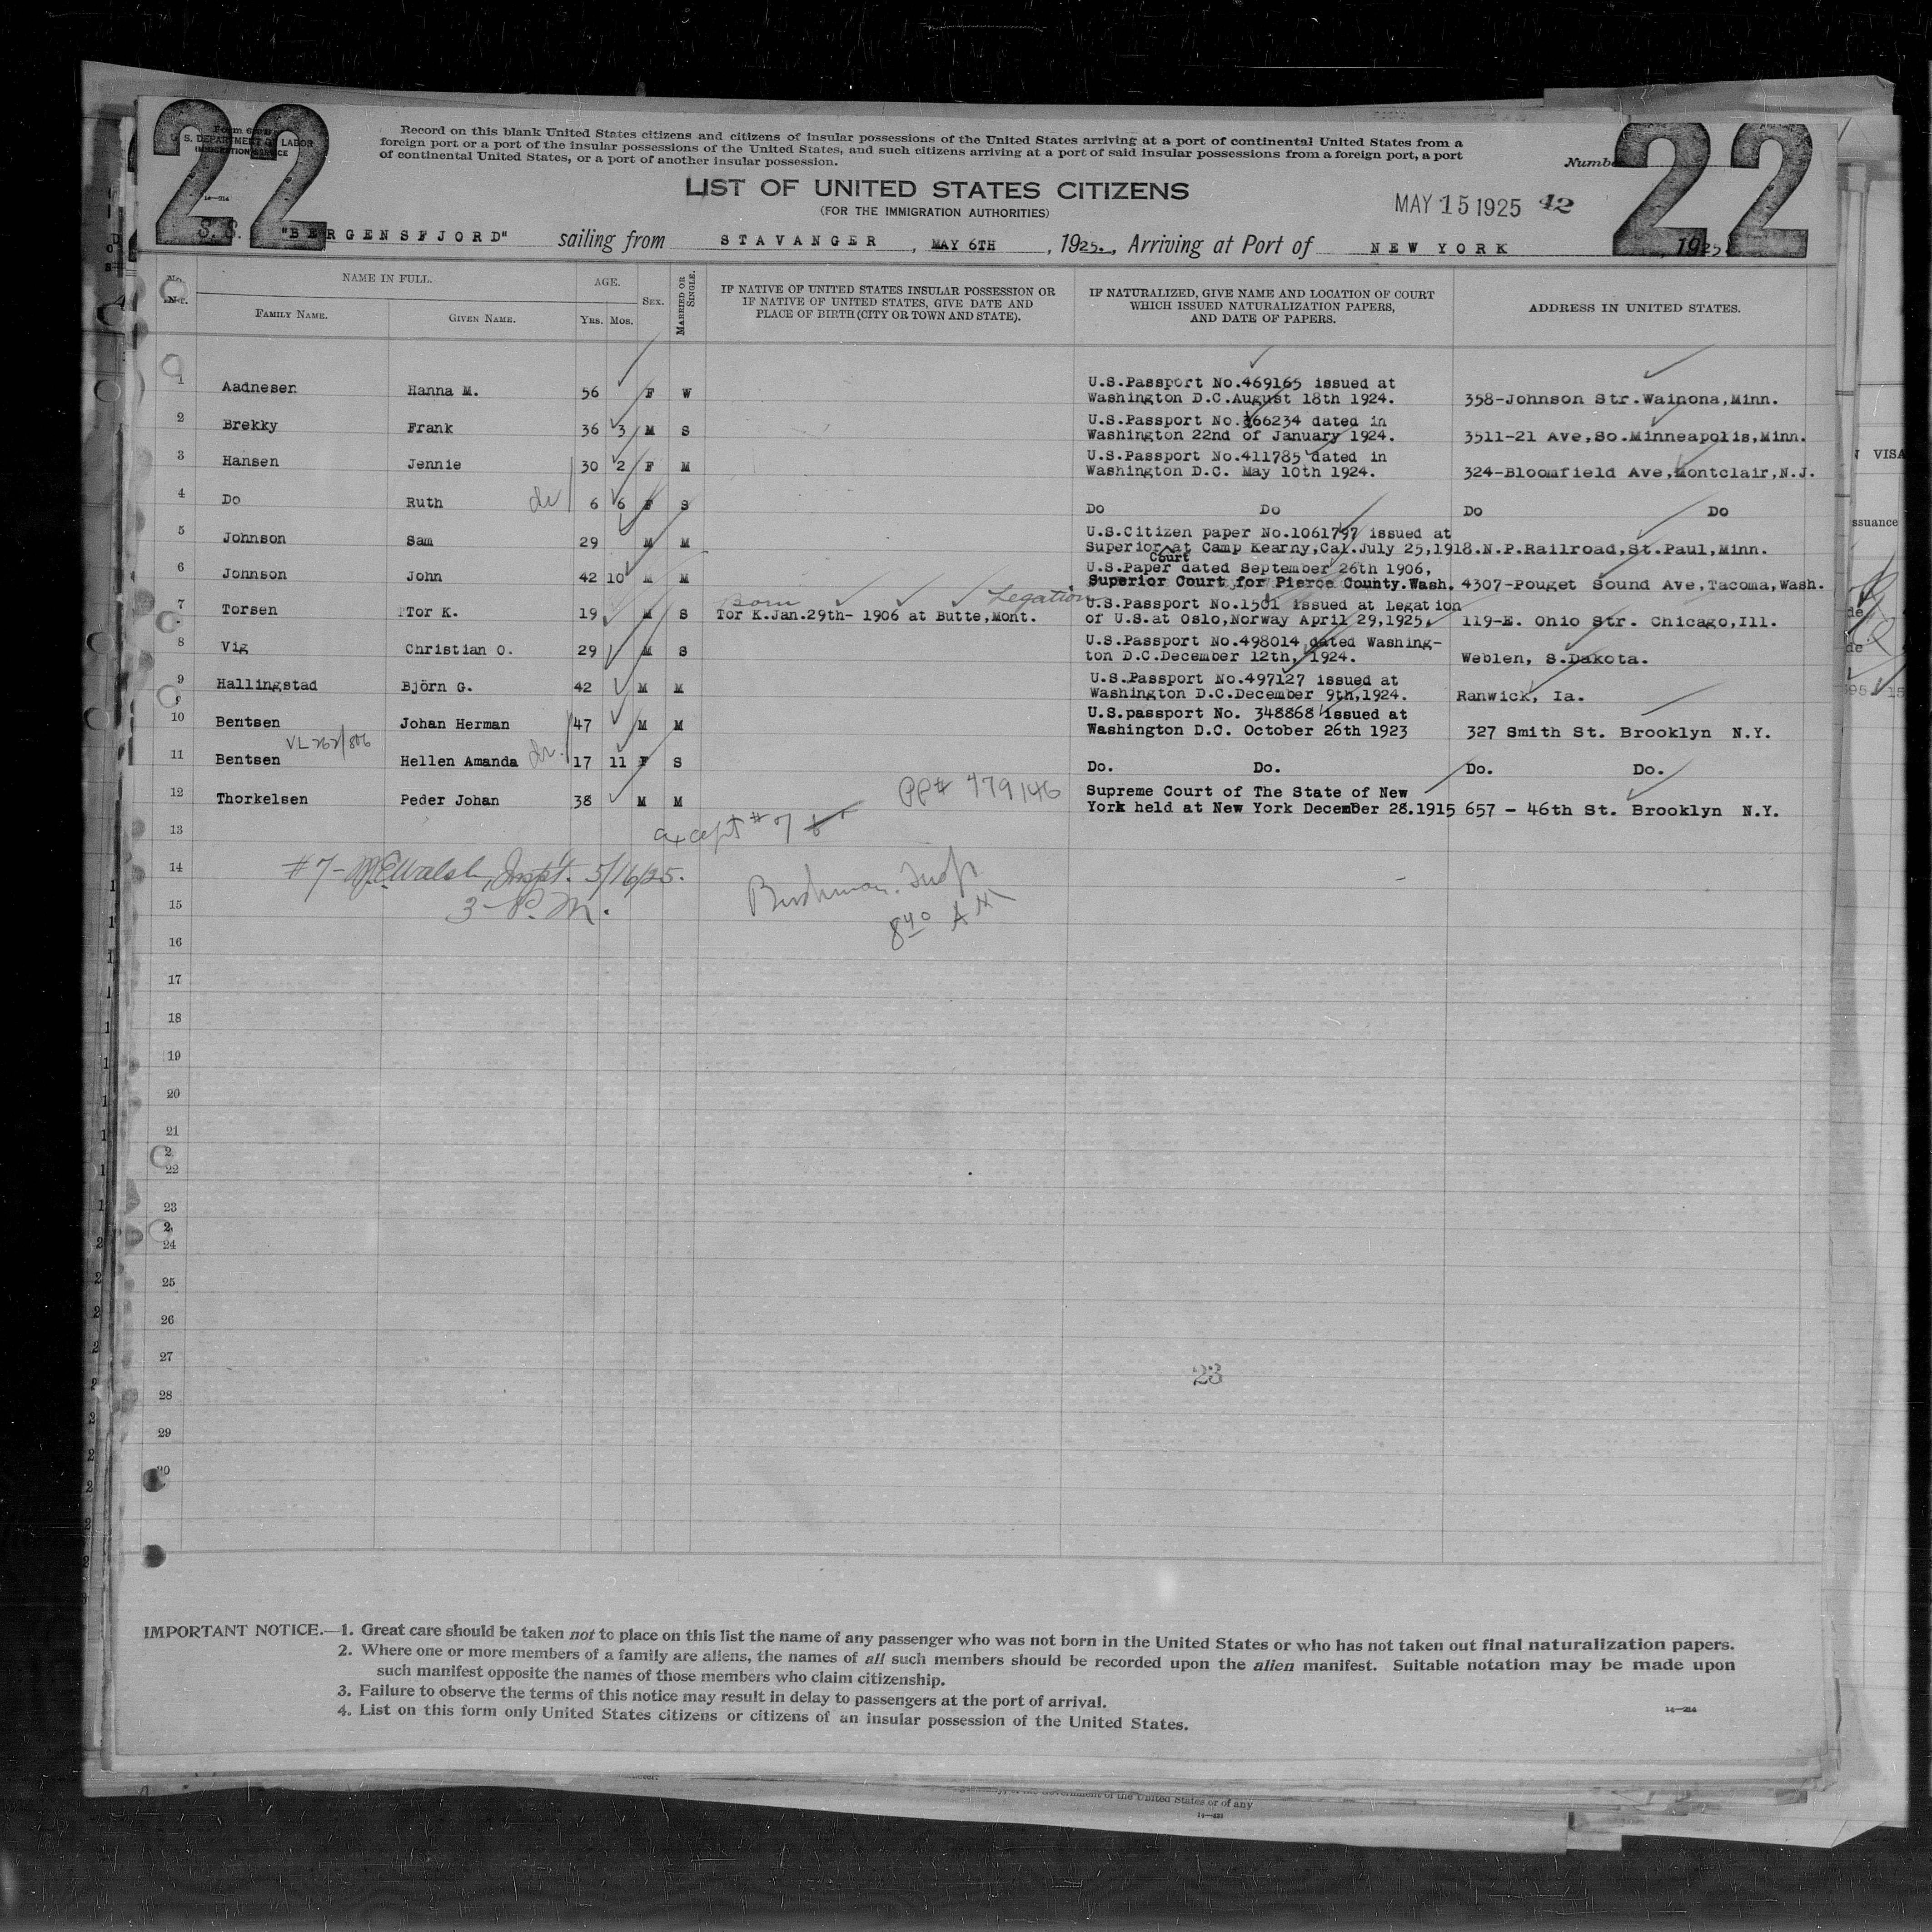 22
22
Form 630
U. S. DEPARTMENT OF LABOR
IMMIGRATION SERVICE
14—214
Record on this blank United States citizens and citizens of insular possessions of the United States arriving at a port of continental United States from a
foreign port or a port of the insular possessions of the United States, and such citizens arriving at a port of said insular possessions from a foreign port, a port
of continental United States, or a port of another insular possession.
Number
LIST OF UNITED STATES CITIZENS
(FOR THE IMMIGRATION AUTHORITIES)
MAY 15 1925 12
S. S. "BERGENSFJORD" sailing from STAVANGER, MAY 6TH, 1925., Arriving at Port of NEW YORK, 1925
No. NAME IN FULL. AGE. SEX. MARRIED OR SINGLE. IF NATIVE OF UNITED STATES INSULAR POSSESSION OR IF NATIVE OF UNITED STATES, GIVE DATE AND PLACE OF BIRTH (CITY OR TOWN AND STATE). IF NATURALIZED, GIVE NAME AND LOCATION OF COURT WHICH ISSUED NATURALIZATION PAPERS, AND DATE OF PAPERS. ADDRESS IN UNITED STATES.
FAMILY NAME. GIVEN NAME. YRS. MOS.
1 Aadnesen Hanna M. 56 F W U.S.Passport No.469165 issued at
Washington D.C.August 18th 1924. 358-Johnson Str.Wainona,Minn.
2 Brekky Frank 36 3 M S U.S.Passport No.366234 dated in
Washington 22nd of January 1924. 3511-21 Ave,So.Minneapolis,Minn.
3 Hansen Jennie 30 2 F M U.S.Passport No.411785 dated in
Washington D.C. May 10th 1924. 324-Bloomfield Ave,Montclair,N.J.
4 Do Ruth 6 6 F S Do Do Do Do
5 Johnson Sam 29 M M U.S.Citizen paper No.1061797 issued at
Superior Court at Camp Kearny,Cal.July 25,1918. N.P.Railroad,St.Paul,Minn.
6 Johnson John 42 10 M M U.S.Paper dated September 26th 1906,
Superior Court for Pierce County.Wash. 4307-Pouget Sound Ave,Tacoma,Wash.
born Legation
7 Torsen Tor K. 19 M S Tor K.Jan.29th- 1906 at Butte,Mont. U.S.Passport No.1501 issued at Legation
of U.S.at Oslo,Norway April 29,1925, 119-E. Ohio Str. Chicago,Ill.
8 Vig Christian O. 29 M S U.S.Passport No.498014 dated Washing-
ton D.C.December 12th, 1924. Weblen, S.Dakota.
9 Hallingstad Björn G. 42 M M U.S.Passport No.497127 issued at
Washington D.C.December 9th,1924. Ranwick, Ia.
10 Bentsen Johan Herman 47 M M U.S.passport No. 348868 issued at
Washington D.C. October 26th 1923 327 Smith St. Brooklyn N.Y.
VL 262/806
11 Bentsen Hellen Amanda 17 11 F S Do. Do. Do. Do.
12 Thorkelsen Peder Johan 38 M M PP# 479146 Supreme Court of The State of New
York held at New York December 28.1915 657 - 46th St. Brooklyn N.Y.
13 except #7
14 #7- McEWalsh, Inspt. 5/16/25. Bushman. Insp
15 3 P.M. 8 40 AM
16
17
18
19
20
21
22
23
24
25
26
27
23
28
29
30
IMPORTANT NOTICE.—1. Great care should be taken not to place on this list the name of any passenger who was not born in the United States or who has not taken out final naturalization papers.
2. Where one or more members of a family are aliens, the names of all such members should be recorded upon the alien manifest. Suitable notation may be made upon
such manifest opposite the names of those members who claim citizenship.
3. Failure to observe the terms of this notice may result in delay to passengers at the port of arrival.
4. List on this form only United States citizens or citizens of an insular possession of the United States.
14—214
Government of the United States or of any